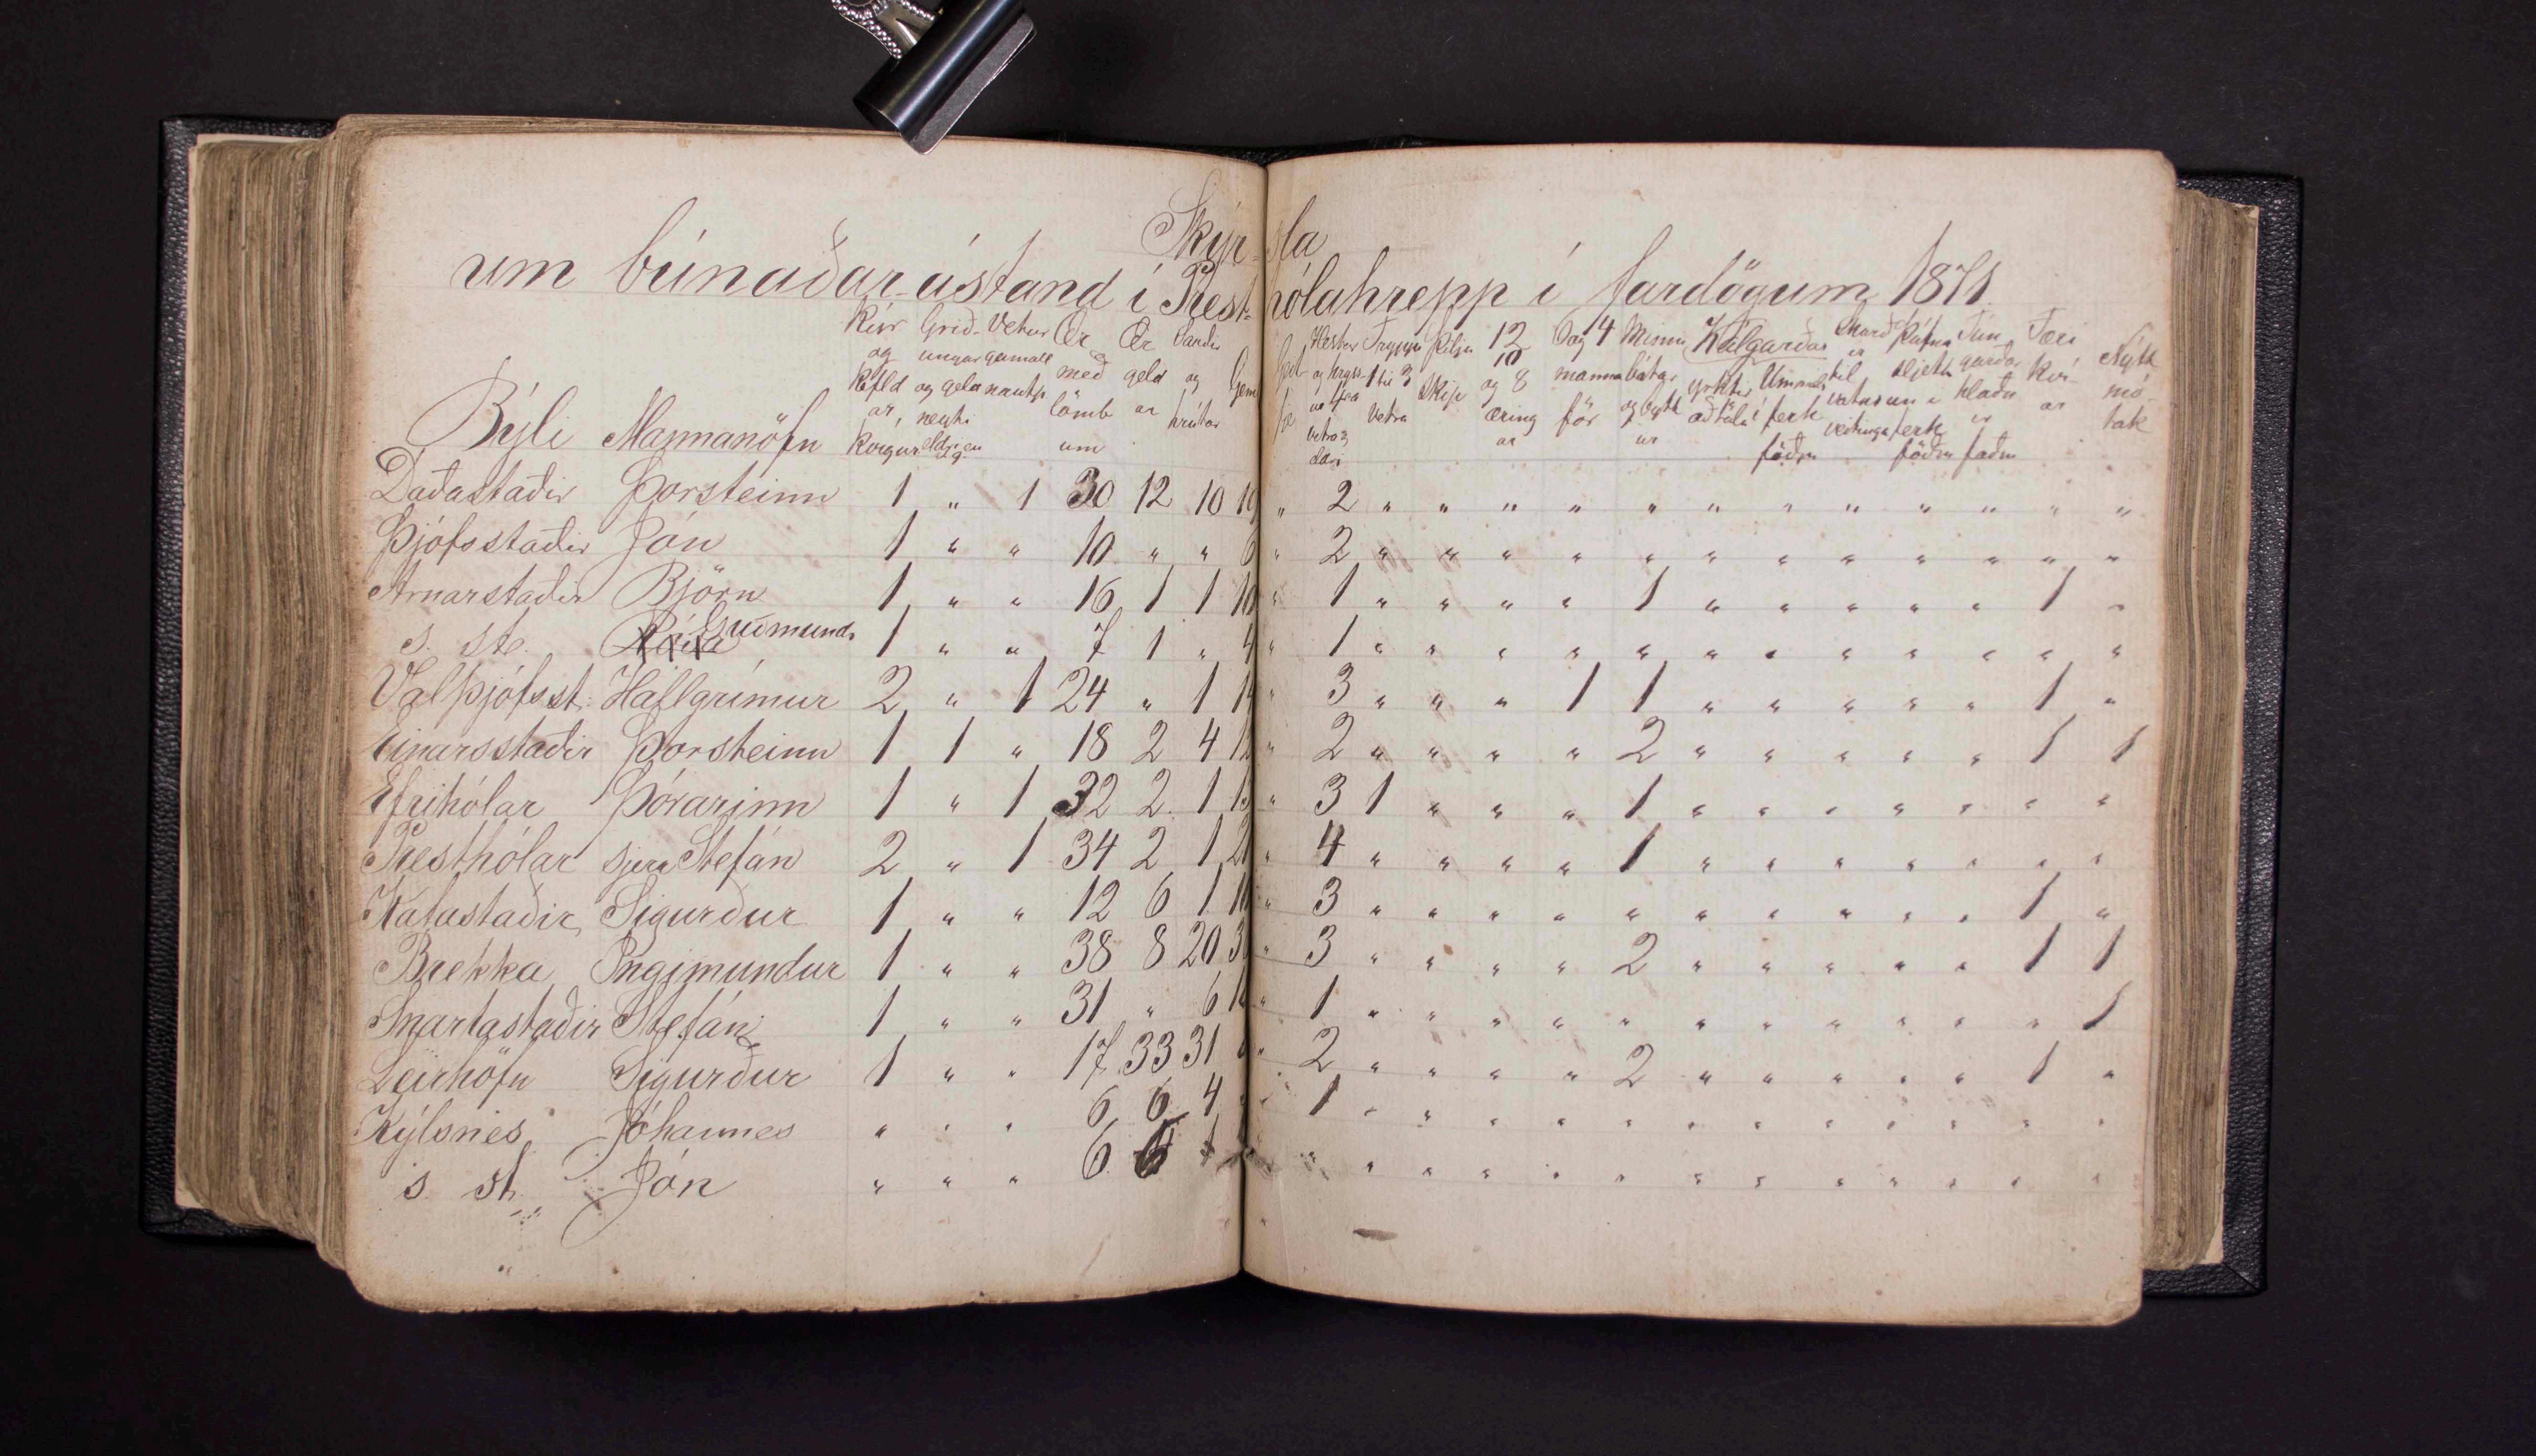 Skýr-sla
um búnaðar-ástand í Prest-hólahrepp í fardögum 1871.
Býli Mannanöfn Kýr og Kefld ar, kvígur Grið-ungar og geld neyti eldri en Vetur gamall nautp Ær með lömb um Ær geld ar Sauðir og hrútar Geml Geit fé Hestar og hryss ur 4ra vetra eldri Tryppi 1 til 3 vetra Þilju skip 12 10 og 8 æring ar 6 og 4 manna för Minni bátar og bytt ur Kálgarðar yrktir að tölu Ummál í ferh föðm Skurð ir til vatns veitinga Þúfna sljett un í ferh föðm Tún garða hlaðn ir faðm Færi kví ar Nýtt mó- tak
Daðastaðir Þorsteinn 1 „ 1 30 12 10 19 „ 2 „ „ „ „ „ „ „ „ „ „ „ „
Þjófsstaðir Jón 1 „ „ 10 „ „ 6 „ 2 „ „ „ „ „ „ „ „ „ „ „ „
Arnarstaðir Björn 1 „ „ 16 1 1 10 „ 1 „ „ „ „ 1 „ „ „ „ „ 1 „
s. st. Guðmund. 1 „ „ 7 1 „ 4 „ 1 „ „ „ „ „ „ „ „ „ „ „ „
Valþjófsst: Hallgrímur 2 „ 1 24 „ 1 14 „ 3 „ „ „ 1 1 „ „ „ „ „ 1 „
Einarsstaðir Þorsteinn 1 1 „ 18 2 4 12 „ 2 „ „ „ „ 2 „ „ „ „ „ 1 1
Efrihólar Þórarinn 1 „ 1 32 2 1 15 „ 3 1 „ „ „ 1 „ „ „ „ „ „ „
Presthólar sjera Stefán 2 „ 1 34 2 1 21 „ 4 „ „ „ „ 1 „ „ „ „ „ „ „
Katastaðir Sigurður 1 „ „ 12 6 1 10 „ 3 „ „ „ „ „ „ „ „ „ „ 1 „
Brekka Ingimundur 1 „ „ 38 8 20 30 „ 3 „ „ „ „ 2 „ „ „ „ „ 1 1
Snartastaðir Stefán 1 „ „ 31 „ 6 16 „ 1 „ „ „ „ „ „ „ „ „ „ „ 1
Leirhöfn Sigurður 1 „ „ 17 33 31 „ 2 „ „ „ „ 2 „ „ „ „ „ 1 „
Kýlsnes Jóhannes „ „ „ 6 6 4 „ „ 1 „ „ „ „ „ „ „ „ „ „ „ „
s. st. Jón „ „ „ 6 „ „ „ „ „ „ „ „ „ „ „ „ „ „